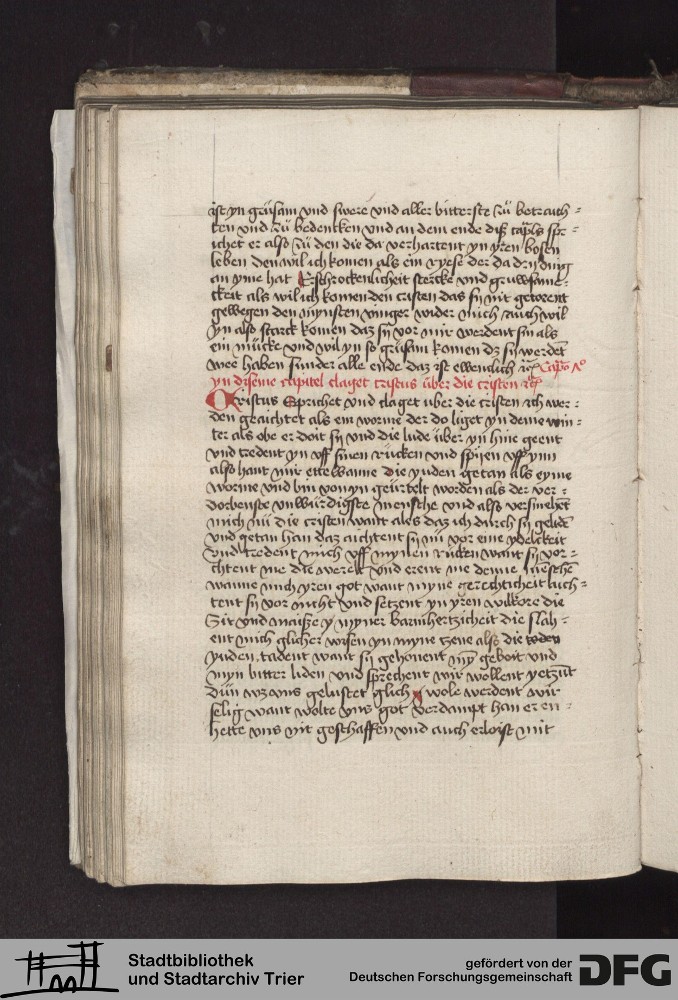 ist yn grusam vnd swere vnd aller bitterste zü betrach=
ten vnd zü bedencken vnd an dem ende diß spr=
ichet er also zü den die da verhartent yn yren bosen
leben den wil ich komen als ein ryese der da dry ding
an yme hat Erschrockenlicheit stercke vnd gruwsame=
ckeit als wil ich komen den cristen das sy nit getorent
gewegen den mynsten vinger wider mich Auch wil
yn also starck komen daz sy vor mir werdent sin als
ein mücke vnd wil yn so grüsam komen dz sy werdēt
wee haben sunder alle ende daz ist ewenclich
yn diseme capitel claget cristus über die cristen
Cristus Sprichet vnd claget uber die cristen Ich wer=
den geaichtet als ein worme der do liget yn deme win=
ter als obe er doit sy vnd die lude über yn hine geent
vnd tredent yn vff sinen rücken vnd spijen vff ynn
also hant mir ettewanne die yuden getan als eyme
worme vnd bin von yn geürtelt worden als der ver=
dorbenste vnwürdigste mensche vnd also versmehent
mich nü die cristen want ales daz ich durch sy gelidē
vnd getan han daz aichtent sy nü vor eine ydelckeit
vnd tredent mich vff mynen rücken want sy vor=
chtent me die werelt vnd erent me denne meschē
wanne mich yren got want myne gerechticheit aich=
tent sy vor nicht vnd setzent yn yren wilkore die
Sit vnd maisze myner barmhertzicheit die slah=
ent mich glicher wisen yn myne zene also die
yuden tadent want sy gehonent my gebott vnd
myn bitter liden vnd sprechent wir wollent yetzūt
dün wz vns gelustet glich wole werdent wir
selig want wolte vns got verdampt han er en=
hette vns nit geschaffen vnd auch erloist mit
Stadtbibliothek
und Stadtarchiv Trier
gefördert von der
Deutschen Forschungsgemeinschaft
DFG